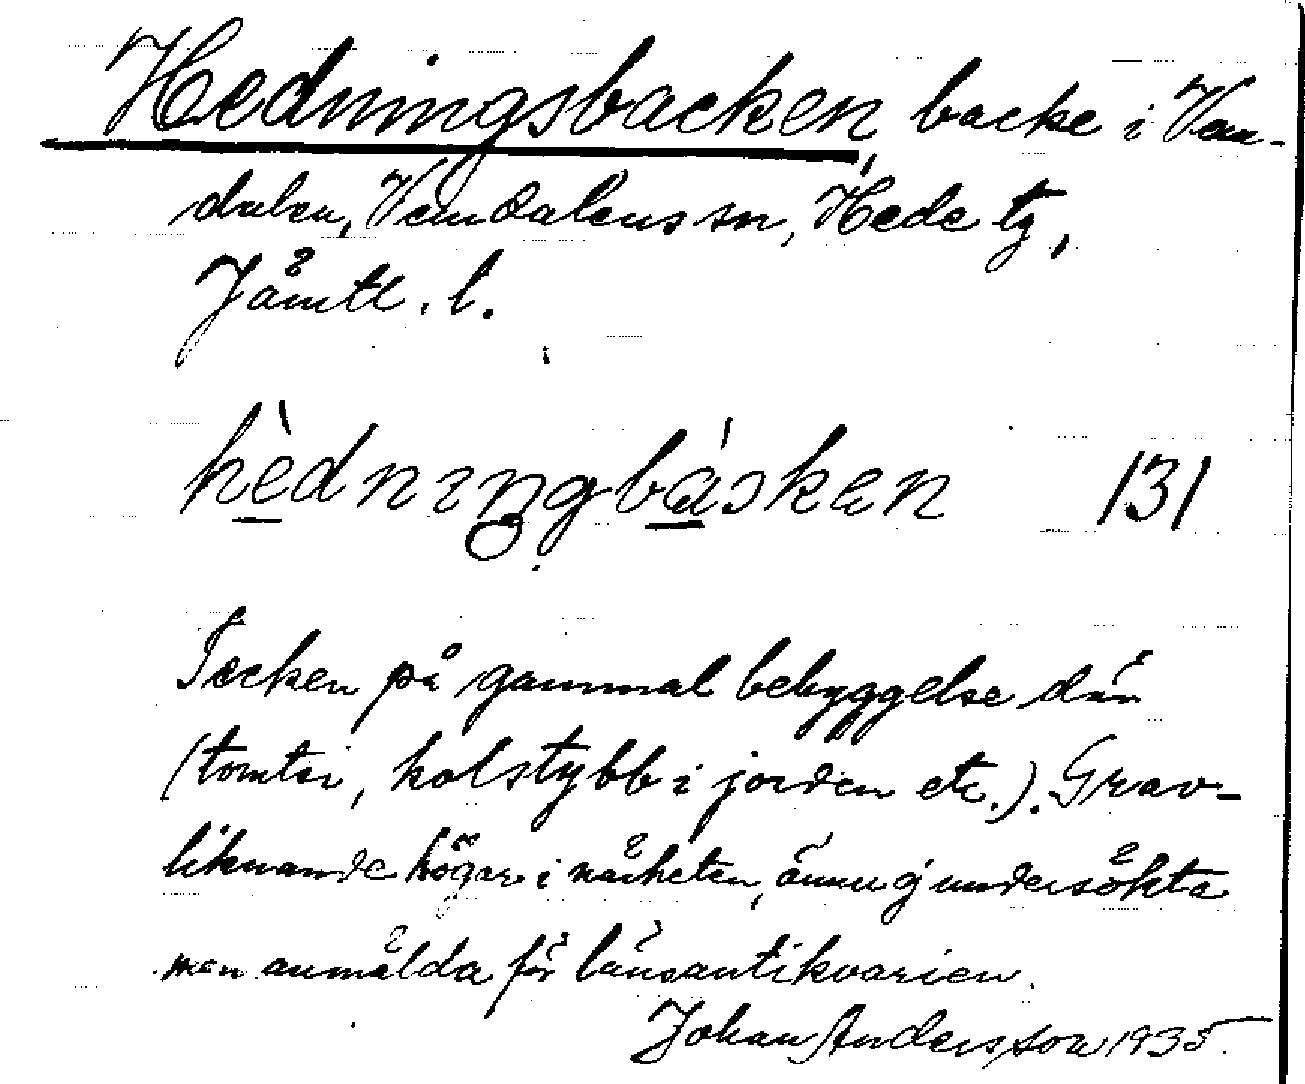 Hedningsbacken, backe i Vem-
dalen, Vemdalens sn, Hede tg,
Jämtl. l.
hèdningbàsken 131
Tecken på gammal bebyggelse där
(tomter, kolstybb i jorden etc.). Grav-
liknande högar i närheten, ännu ej undersökta
men anmälda för länsantikvarien.
Johan Andersson 1935.